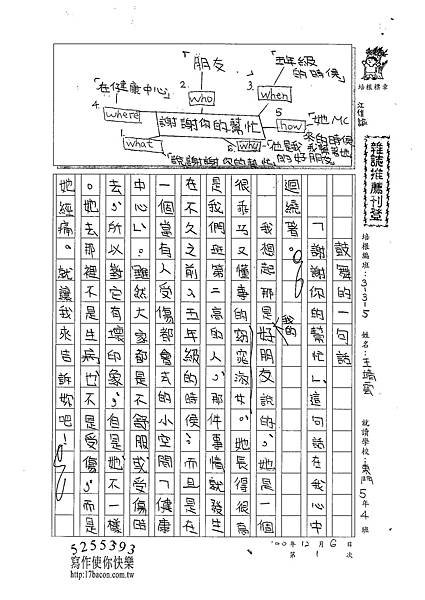 「五年級
的時候」
朋友
「在健康中心」
2.
who
3.
when
4.
where
謝謝你的幫忙
5
how
「她MC
來的時候
1.
what
6.
why
「說謝謝你的幫忙」
「她是我
的好朋友」
雜誌推薦刊登
培根標章
培根編班:3-3-5
姓名:
就讀學校:東門5年4班
鼓舞的一句話
「謝謝你的幫忙」這句話在我心中
迴繞著。
我想起那是我的好朋友說的,她是一個
很乖巧又懂事的窈窕淑女。她長得很高
是我們班第二高的人,那件事情就發生
在不久之前(五年級的時候)而且是在
一個當有人受傷都會去的小空間「健康
中心」。雖然大家都是不舒服或受傷時
去,所以對它有壞印象,但是她不一樣
。她去那裡不是生病,也不是受傷,而是
她經痛。就讓我來告訴妳吧!
'00年12月6日
第1次
5255393
寫作使你快樂
http://17bacon.com.tw